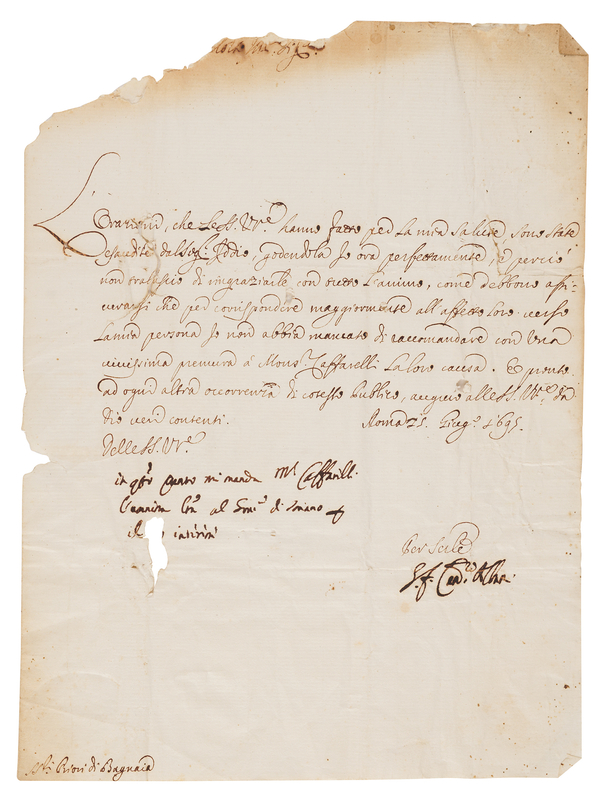 Molto Mag.ci Sig.ri
L'Orationi, che le SS. VV.re hanno fatte per la mia salute, sono state
esaudite dal Sig.r Iddio, godendola Io ora perfettamente, e perciò
non tralascio di ringratiarle con tutto l'animo, come debbono assi-
curarsi che per corrispondere maggiormente all'affetto loro verso
la mia persona Io non abbia mancato di raccomandare con una
vivissima premura à Mons.r Caffarelli la loro causa. E pronto
ad ogni altra occorrenza di cotesto Publico, auguro alle SS. VV.re da
Dio veri contenti. Roma 25. Giug.o 1695.
Delle SS. VV.re
in q.to punto mi manda M.r Caffarelli
l'annessa al di Soriano
Per Serle
G. F. Card. Albani
SS.ri Priori di Bagnaia